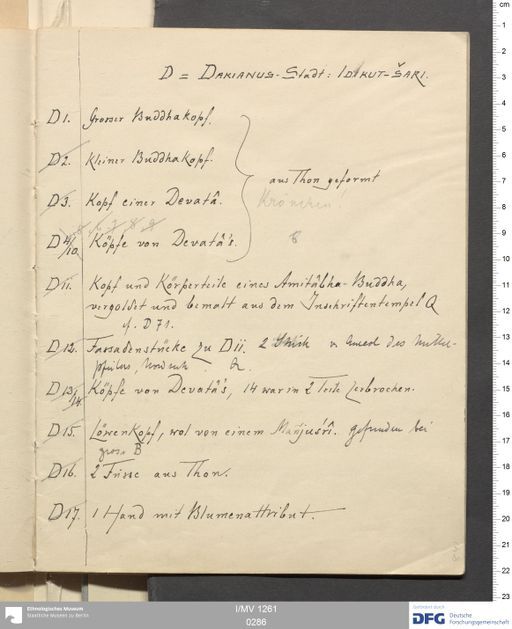 D = DAKIANUS-Stadt: IDIKUT-ŠARI.
D1. Grosser Buddhakopf.
D2. Kleiner Buddhakopf.
aus Thon geformt
D3. Kopf einer Devatâ.
Krönchen!
D4/10 Köpfe von Devatâ's. 8
D11. Kopf und Körperteile eines Amitâbha-Buddha,
vergoldet und bemalt aus dem Inschriftentempel Q
cf. D71.
D12. Fassadenstücke zu D11. 2 Stück v.
D13/14. Köpfe von Devatâ's, 14 war in 2 Teile zerbrochen.
D15. Löwenkopf, wol von einem Mañjuśrî. gefunden bei
B
D16. 2 Füsse aus Thon.
D17. 1 Hand mit Blumenattribut.
cm
1
2
3
4
5
6
7
8
9
10
11
12
13
14
15
16
17
18
19
20
21
22
23
Ethnologisches Museum
Staatliche Museen zu Berlin
I/MV 1261
0286
gefördert durch
DFG Deutsche
Forschungsgemeinschaft